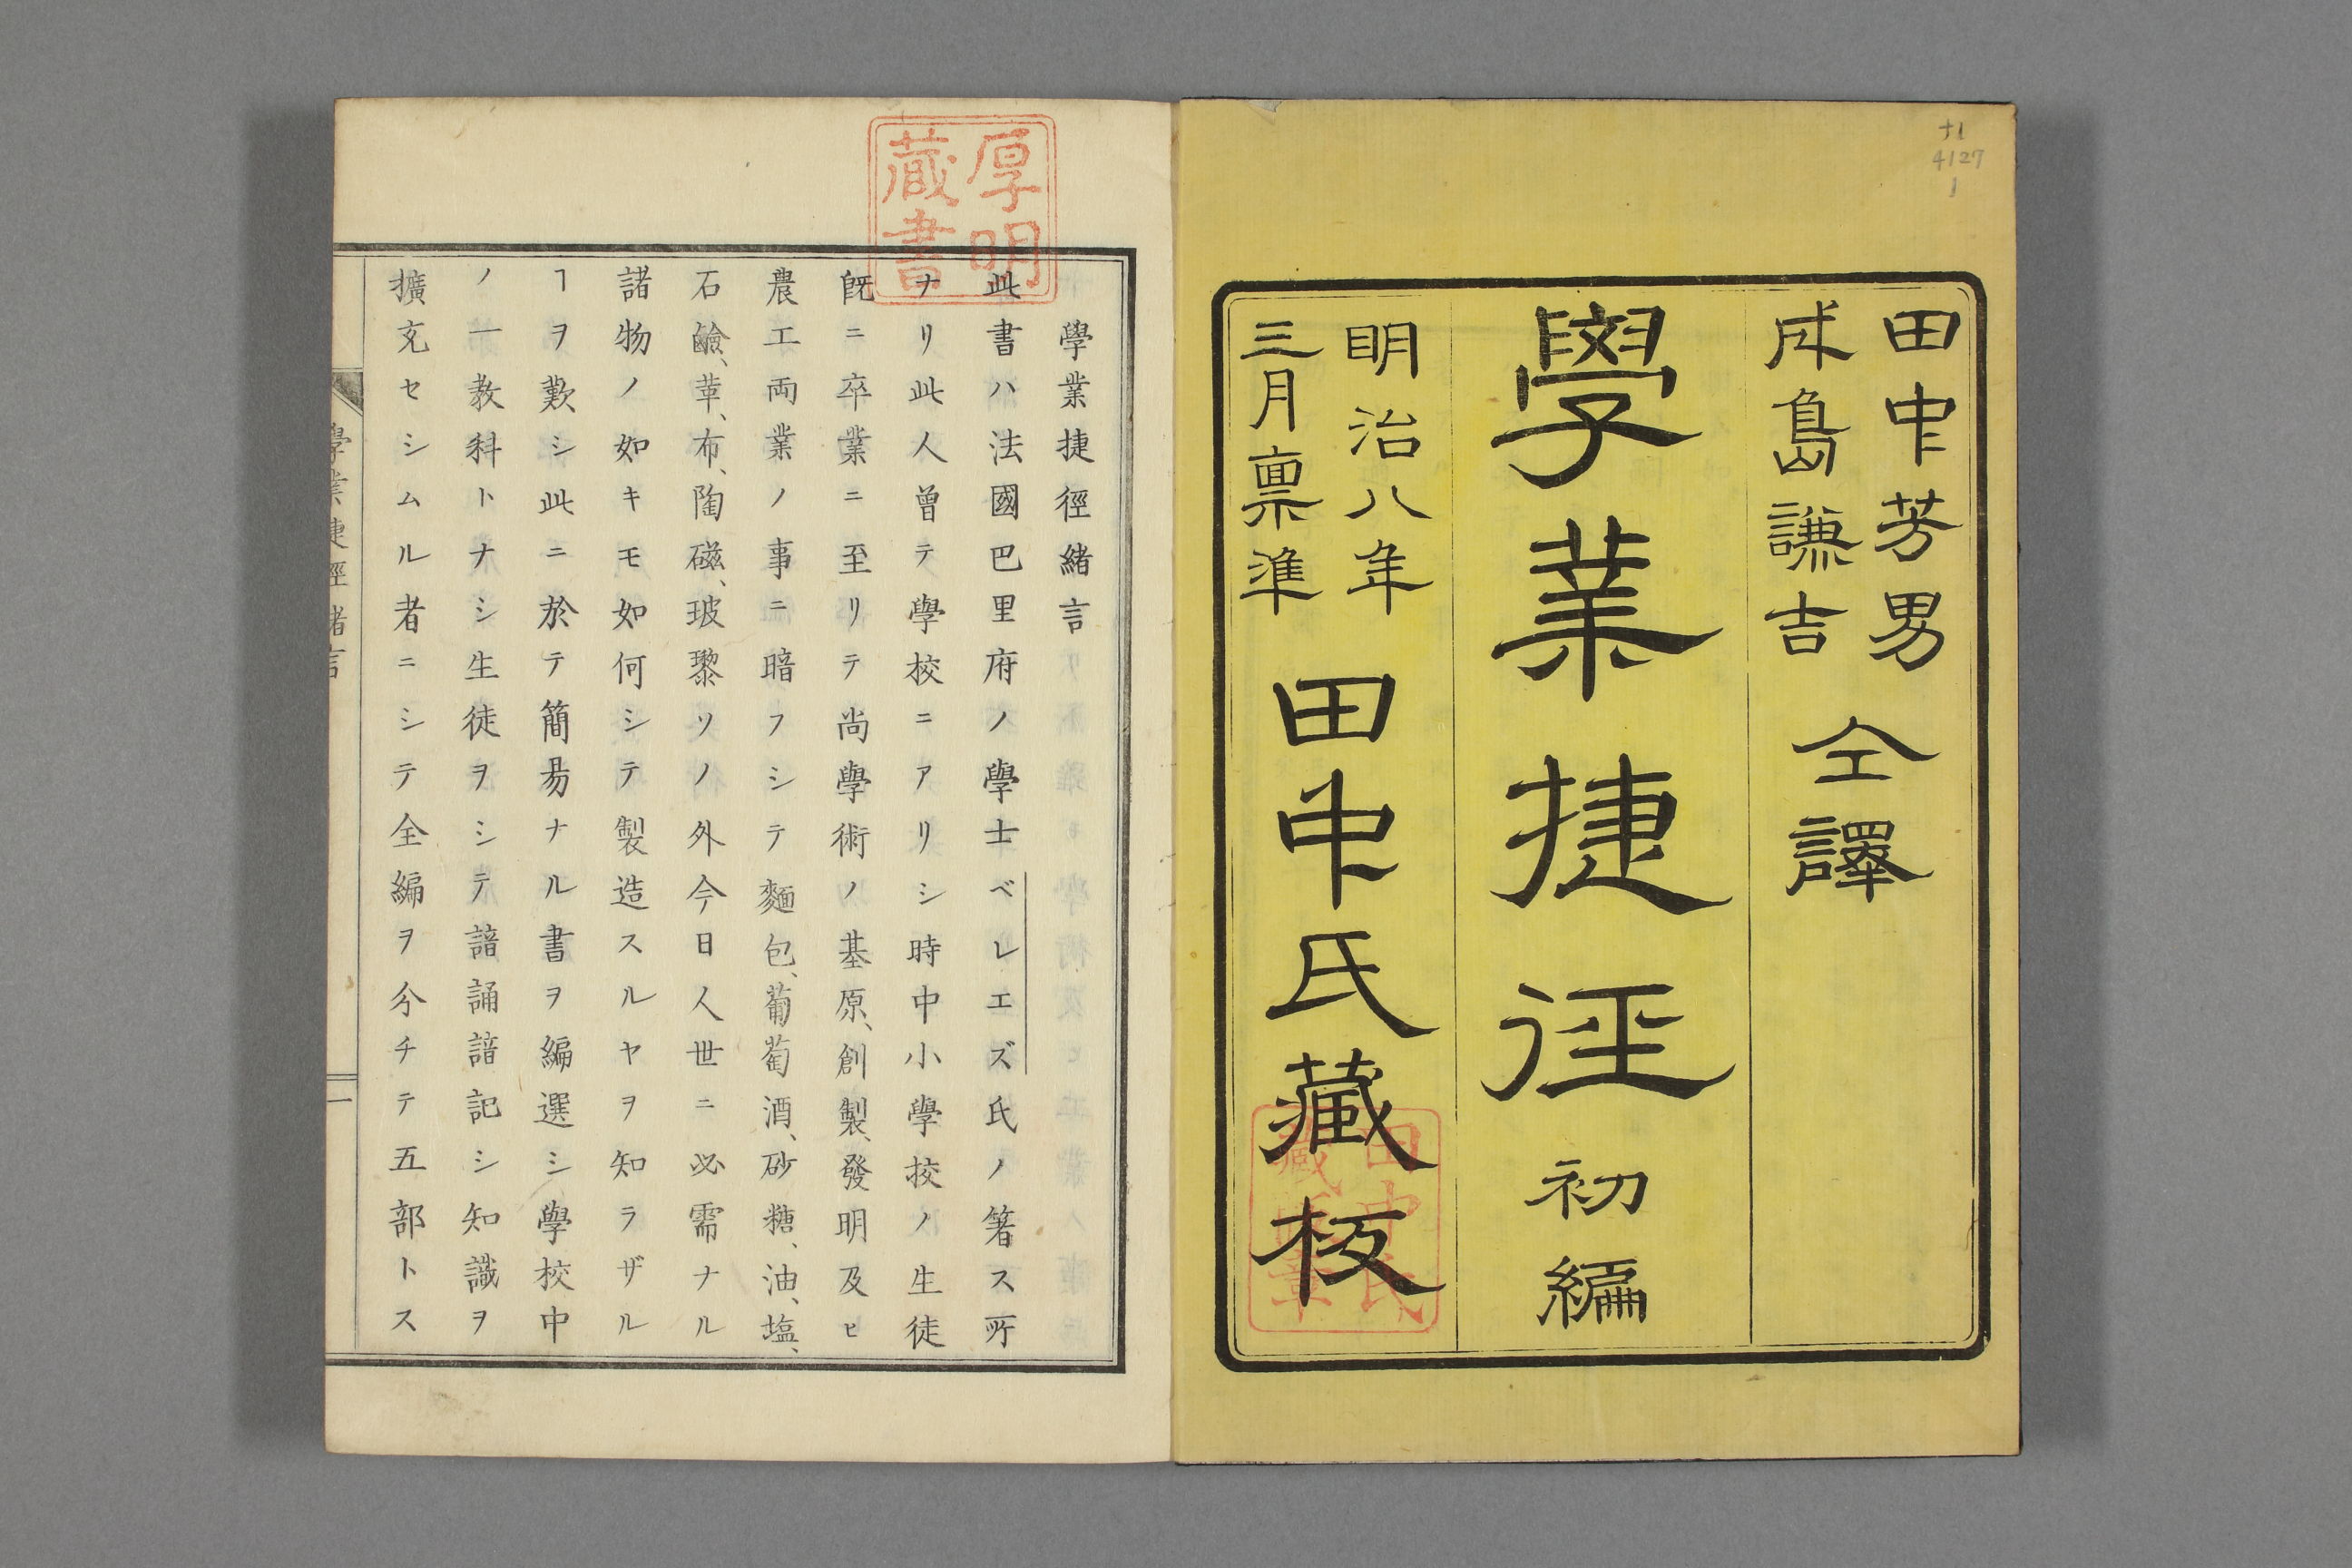 十1
4127
1
田中芳男
成島謙吉
仝譯
學業捷徑 初編
明治八年
三月稟準
田中氏藏板
田中氏
厚明
藏書
學業捷徑緒言
此書ハ法國巴里府ノ學士ベレエズ氏ノ著ス所
ナリ此人曾テ學校ニアリシ時中小學挍ノ生徒
既ニ卒業ニ至リテ尚學術ノ基原、創製、發明及ヒ
農工両業ノ事ニ暗フシテ麵包、葡萄酒、砂糖、油、塩、
石鹼、革、布、陶磁、玻瓈ソノ外今日人世ニ必需ナル
諸物ノ如キモ如何シテ製造スルヤヲ知ラザル
ヿヲ歎シ此ニ於テ簡易ナル書ヲ編選シ學校中
ノ一教科トナシ生徒ヲシテ諳誦諳記シ知識ヲ
擴充セシムル者ニシテ全編ヲ分チテ五部トス
學業捷徑緒言
一